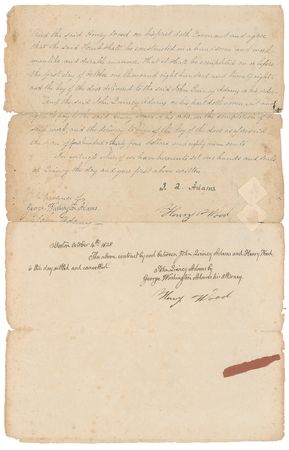 the said Henry Wood on his part doth Covenant and agree
that the said Tomb shall be constructed in a handsome and work
manlike and durable manner. That it shall be completed on or before
the first day of October one thousand eight hundred and twenty eight,
and the key of the door delivered to the said John Quincy Adams
And the said John Quincy Adams on his part doth covenant and
agree to pay to the said Henry Wood on the completion of the
said work, and the delivery to him of the key of the door as aforesaid
the sum of hundred & thirty four dollars and eighty nine cents
In witness whereof we have hereunto set our hands and seals
at Quincy the day and year first above written
In presence of
George Washington Adams
Adams
J. Q. Adams
Henry Wood
Boston October 16th 1828
The above contract by and between John Quincy Adams and Henry Wood
is this day settled and cancelled
John Quincy Adams by
George Washington Adams his attorney
Henry Wood